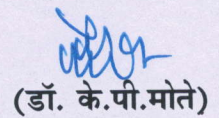 (डॉ. के.पी.मोते)